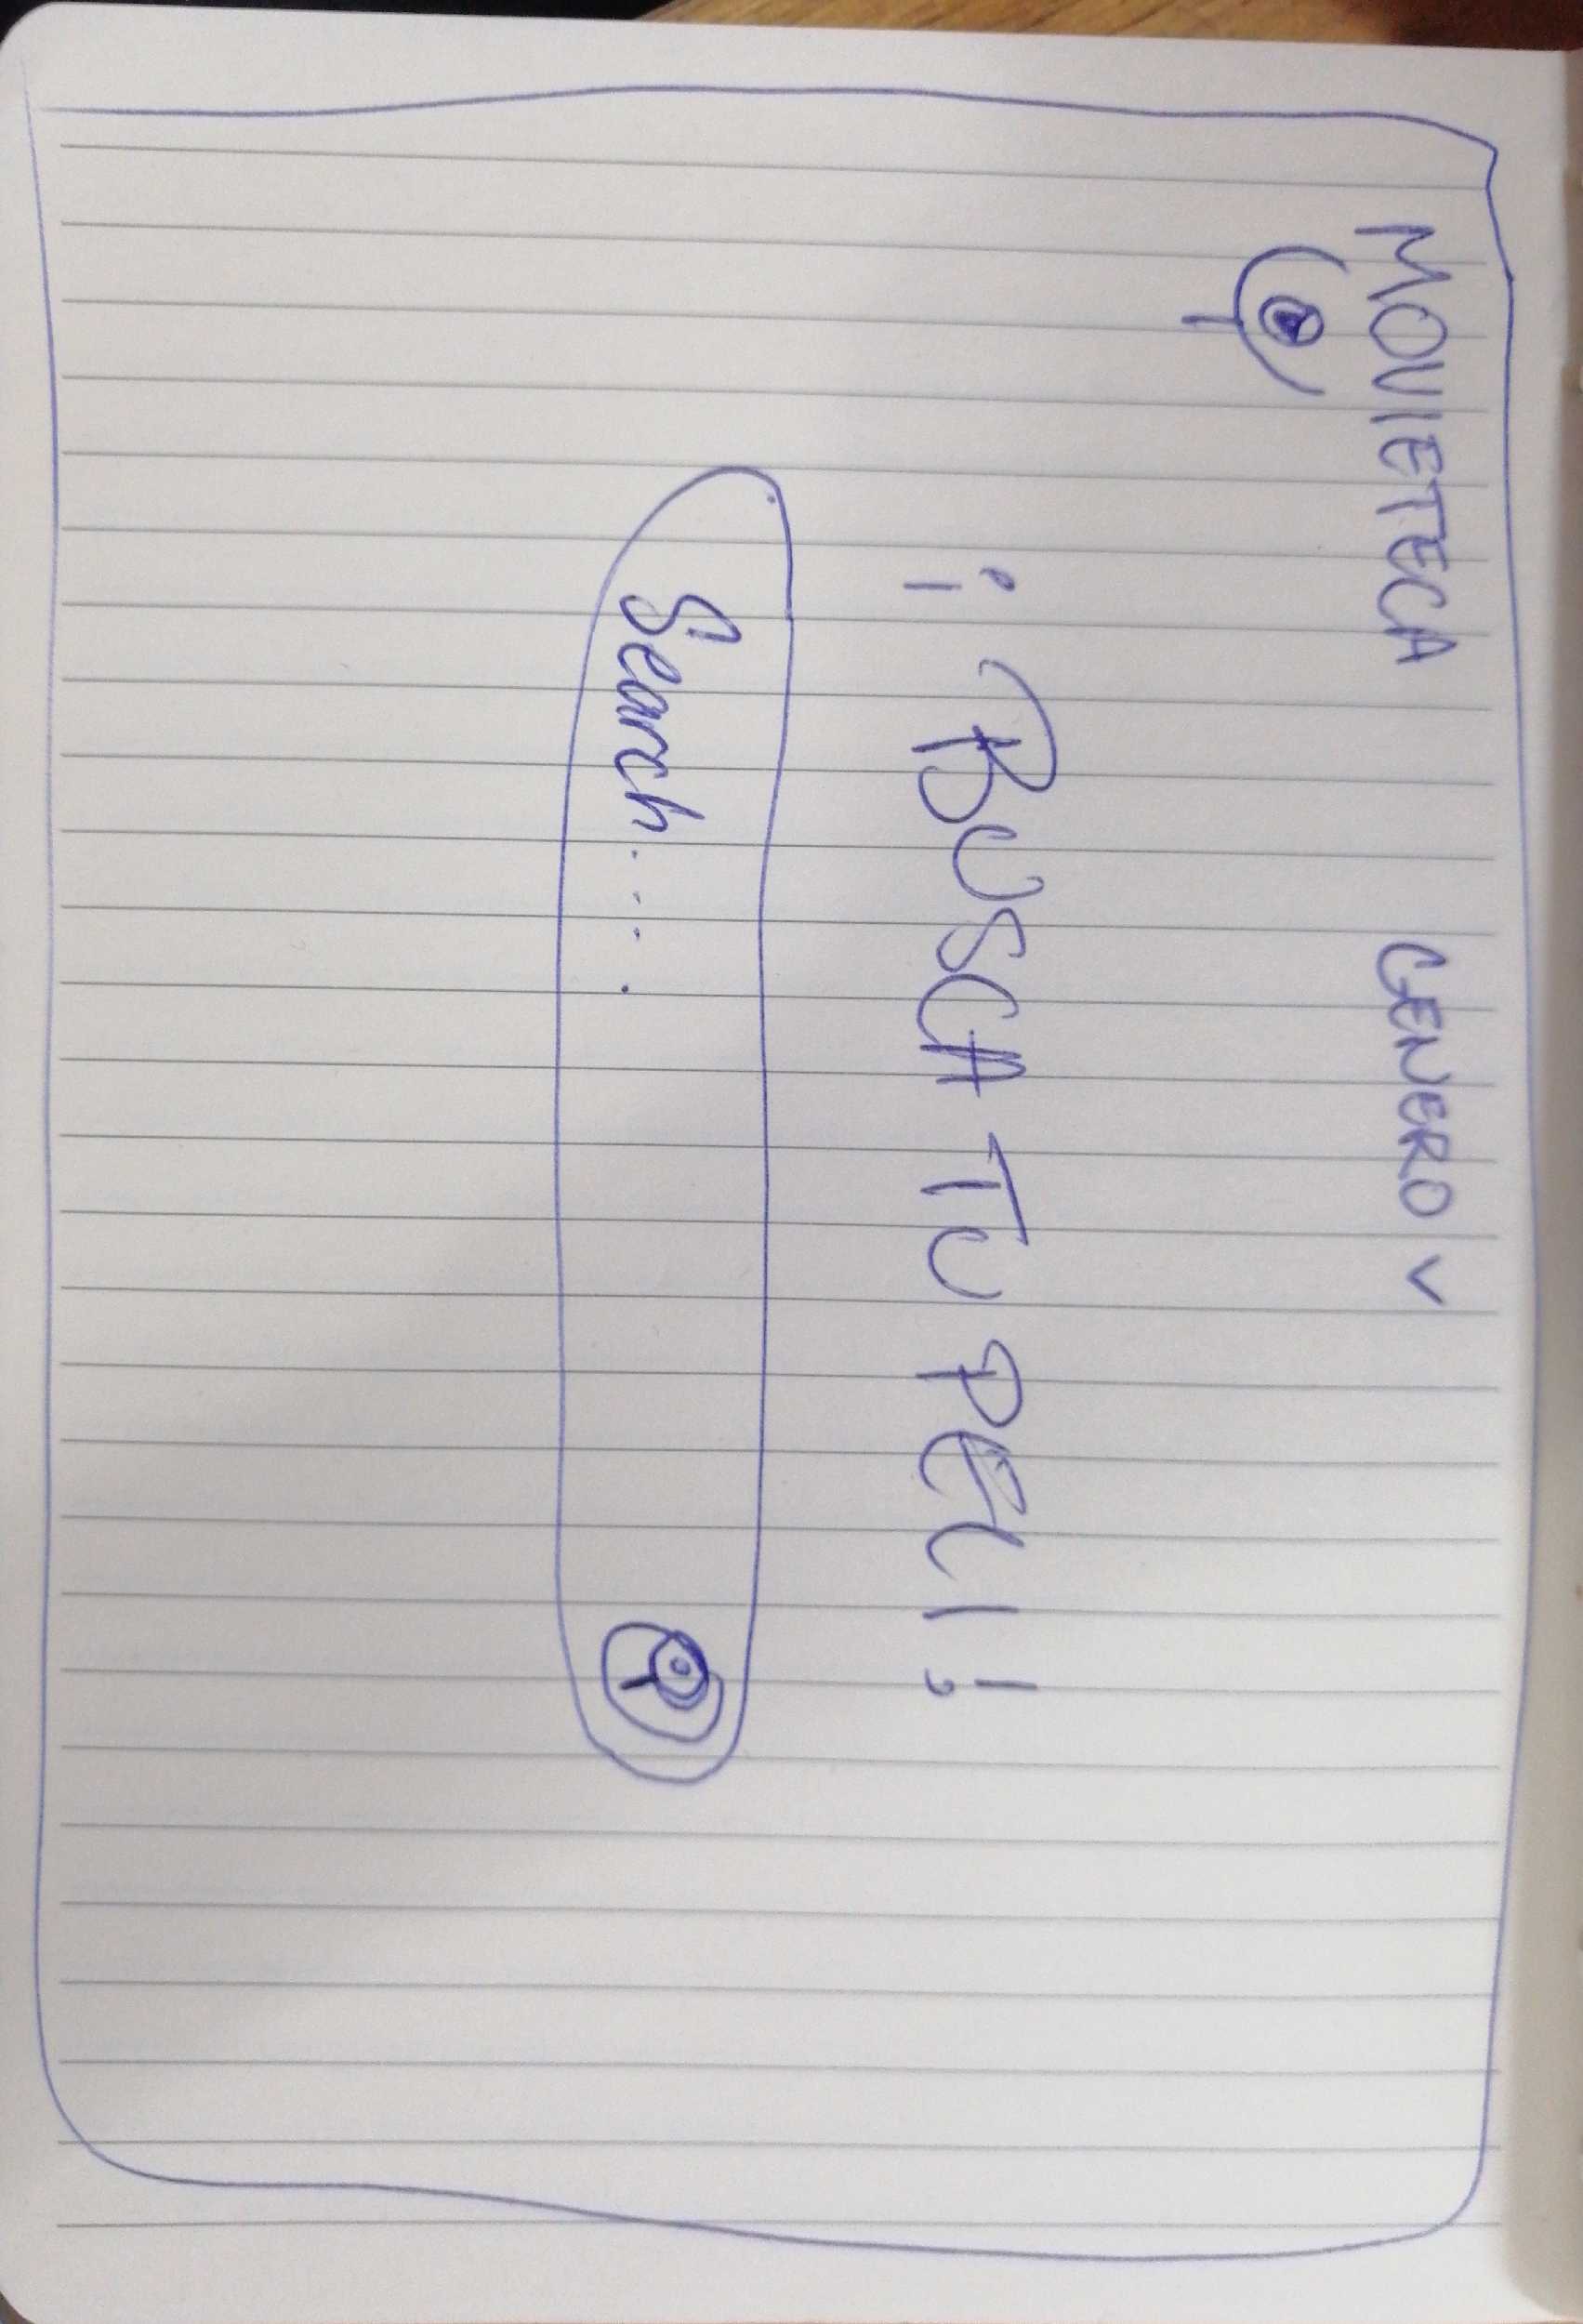 MOVIETECA GENERO ∨
¡ BUSCA TU PELI !
Search....